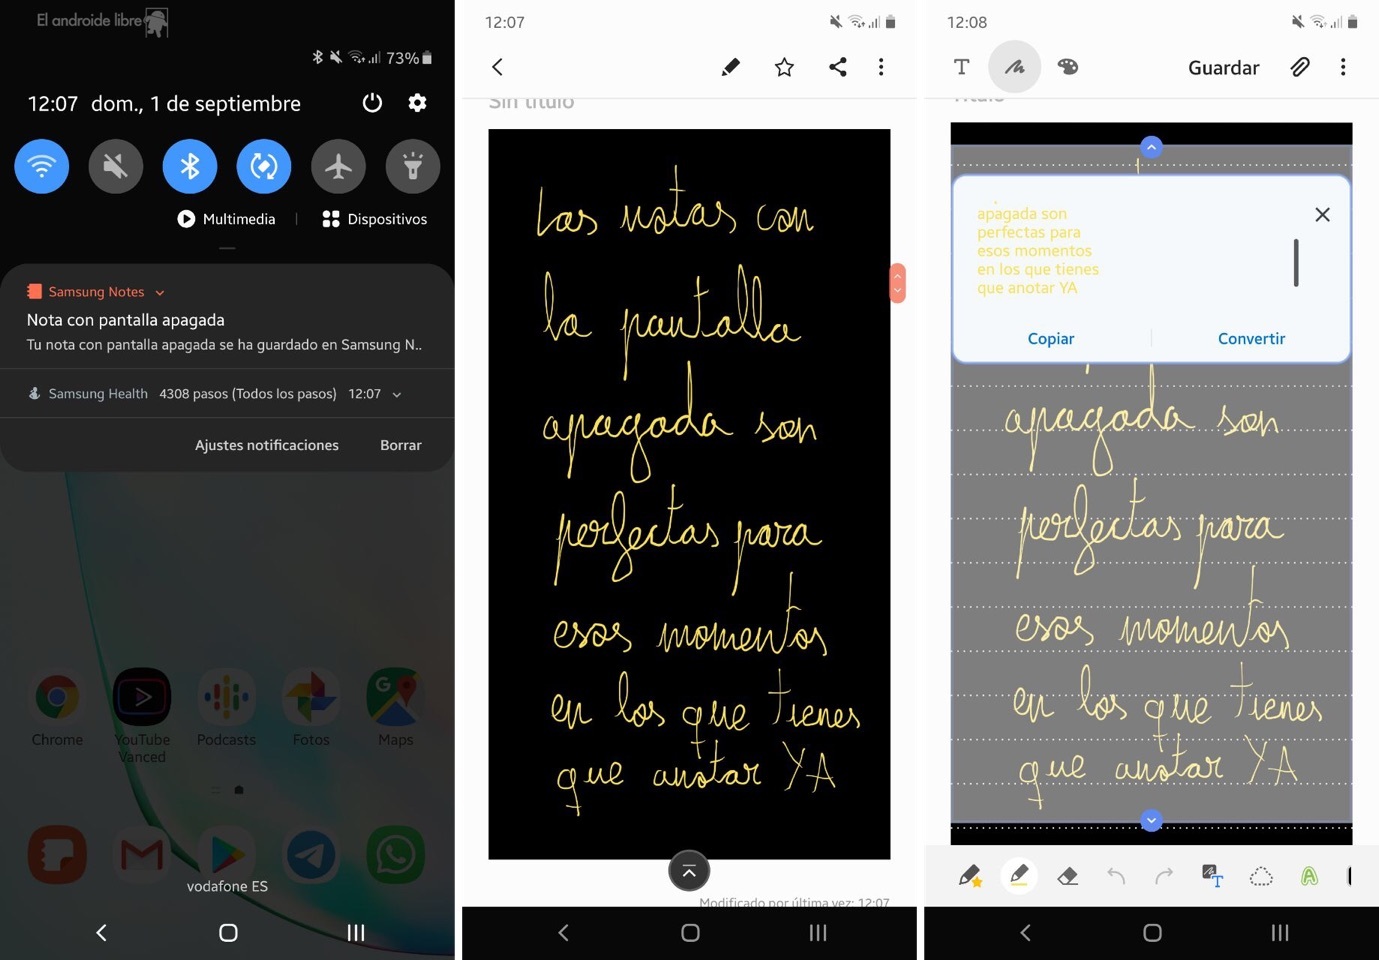 El androide libre
73%
12:07 dom., 1 de septiembre
Multimedia
Dispositivos
Samsung Notes
Nota con pantalla apagada
Tu nota con pantalla apagada se ha guardado en Samsung N..
Samsung Health 4308 pasos (Todos los pasos) 12:07
Ajustes notificaciones
Borrar
Chrome
YouTube Vanced
Podcasts
Fotos
Maps
vodafone ES
12:07
Sin título
Las notas con
la pantalla
apagada son
perfectas para
esos momentos
en los que tienes
que anotar YA
Modificado por última vez: 12:07
12:08
T
Guardar
Título
apagada son
perfectas para
esos momentos
en los que tienes
que anotar YA
Copiar
Convertir
apagada son
perfectas para
esos momentos
en los que tienes
que anotar YA